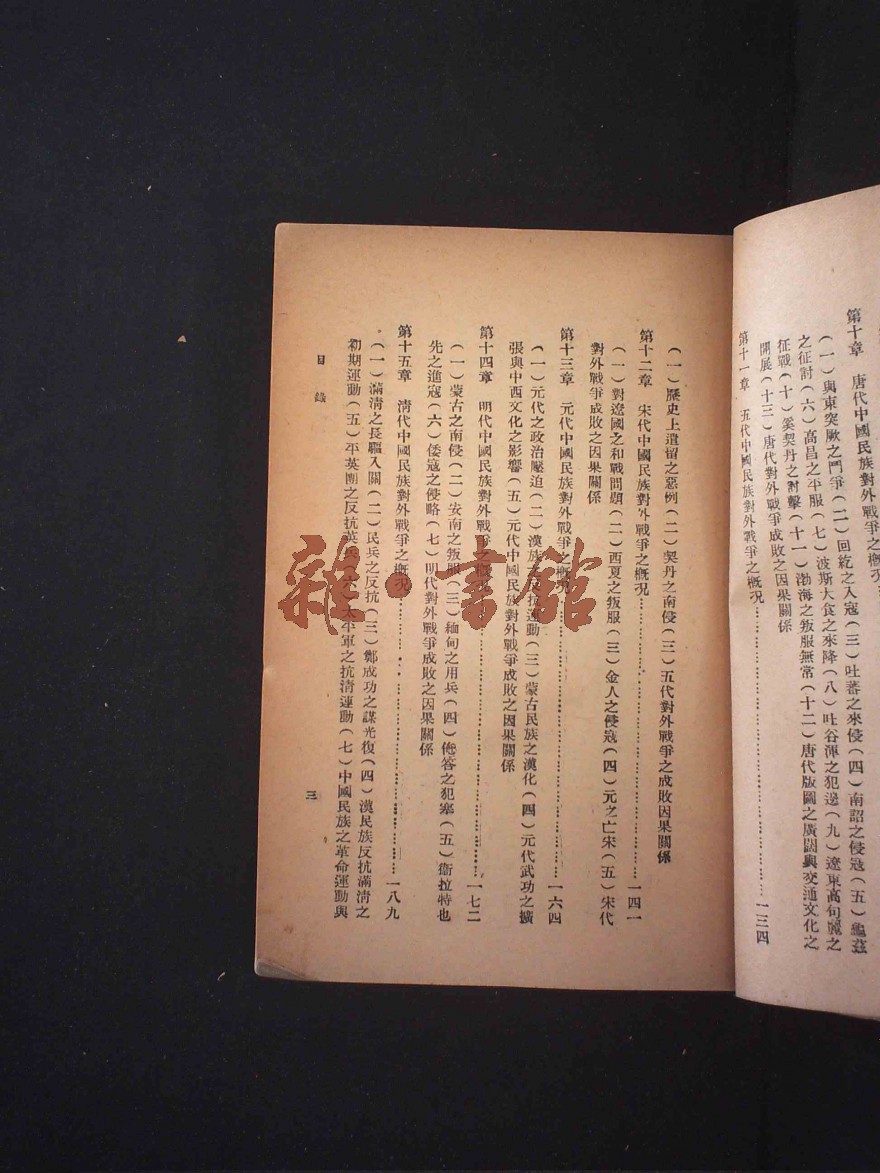 第十章　唐代中國民族對外戰爭之
（一）與東突厥之鬥爭（二）回紇之入寇（三）吐蕃之來侵（四）南詔之侵寇（五）龜茲
之征討（六）高昌之平服（七）波斯大食之來降（八）吐谷渾之犯邊（九）遼東高句麗之
征戰（十）奚契丹之討擊（十一）渤海之叛服無常（十二）唐代版圖之廣闊與交通文化之
開展（十三）唐代對外戰爭成敗之因果關係
第十一章　五代中國民族對外戰爭之概況……一三四
（一）歷史上遺留之惡例（二）契丹之南侵（三）五代對外戰爭之成敗因果關係
第十二章　宋代中國民族對外戰爭之概況……一四一
（一）對遼國之和戰問題（二）西夏之叛服（三）金人之侵寇（四）元之亡宋（五）宋代
對外戰爭成敗之因果關係
第十三章　元代中國民族對外戰爭之概況……一六四
（一）元代之政治壓迫（二）漢族之反抗運動（三）蒙古民族之漢化（四）元代武功之擴
張與中西文化之影響（五）元代中國民族對外戰爭成敗之因果關係
第十四章　明代中國民族對外戰爭之概況……一七二
（一）蒙古之南侵（二）安南之叛服（三）緬甸之用兵（四）俺答之犯塞（五）衛拉特也
先之進寇（六）倭寇之侵略（七）明代對外戰爭成敗之因果關係
第十五章　清代中國民族對外戰爭之概況……一八九
（一）滿清之長驅入關（二）民兵之反抗（三）鄭成功之謀光復（四）漢民族反抗滿清之
初期運動（五）平英團之反抗英兵（六）太平軍之抗清運動（七）中國民族之革命運動與
目錄
三
雜·書館